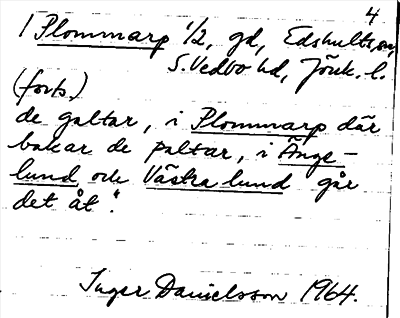 4
1 Plommarp 1/2, gd, Edshults sn,
S. Vedbo hd, Jönk. l.
(forts.)
de galtar, i Plommarp där
bakar de paltar, i Änge-
lund och Västra lund går
det åt".
Inger Danielsson 1964.